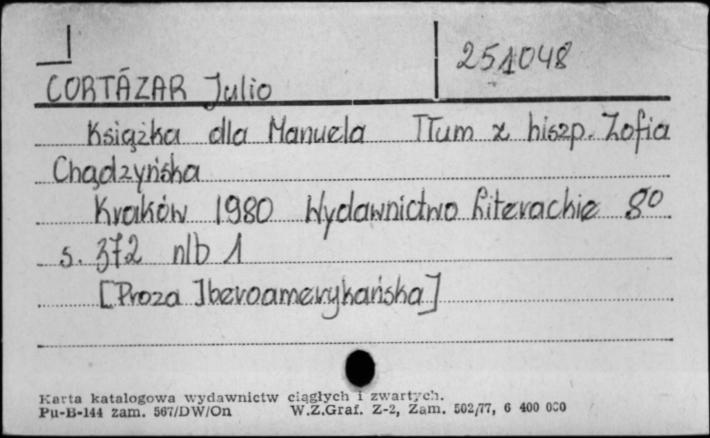 251048
CORTÁZAR Julio
Książka dla Manuela Tłum z hiszp. Zofia
Chądzyńska
Kraków 1980 Wydawnictwo Literackie 8o
s. 372 nlb 1
[Proza Iberoamerykańska]
Karta katalogowa wydawnictw ciągłych i zwartych.
Pu-B-144 zam. 567/DW/On W.Z.Graf. Z-2, Zam. 502/77, 6 400 000